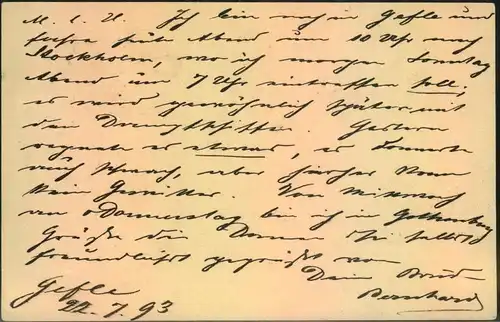 M. l. U. Ich bin noch in Gefle und
fahre heute Abend um 10 Uhr nach
Stockholm, wo ich morgen Sonntag
Abend um 7 Uhr eintreffen soll;
es wird gewöhnlich später mit
den Dampfschiffen. Gestern
regnete es etwas, es donnerte
auch schwach, aber
kein Gewitter. Von Mittwoch
an Donnerstag bin ich in Gothenburg
Grüße die Damen Du selbst
freundlichst gegrüßt von
Dein Bruder
Gefle Bernhard
22.7.93